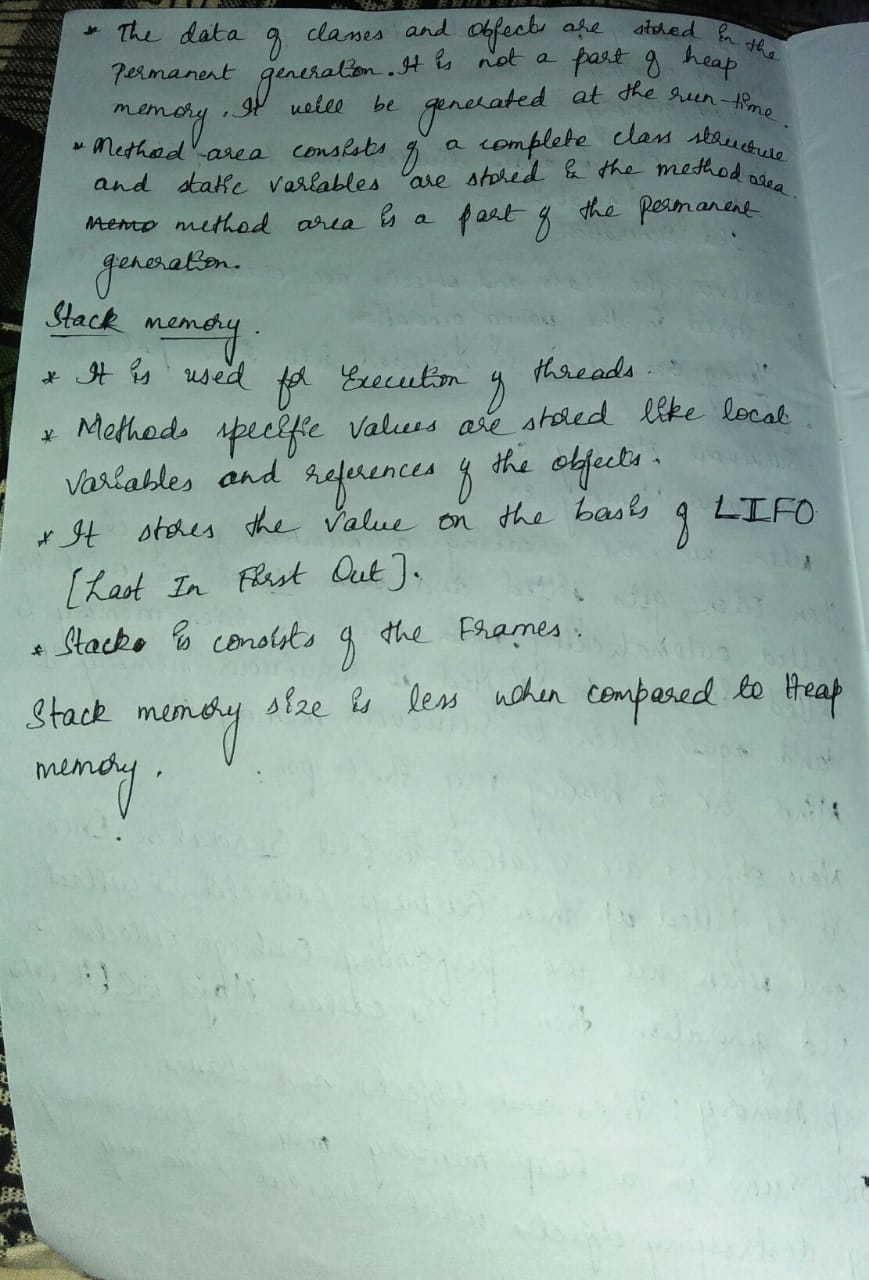 * The data of classes and objects are stored in the
Permanent generation. It is not a part of heap
memory. It will be generated at the run-time.
* Method area consists of a complete class structure
and static variables are stored in the method area.
Memo method area is a part of the permanent
generation.
Stack memory.
* It is used for Execution of threads.
* Methods specific values are stored like local
variables and references of the objects.
* It stores the value on the basis of LIFO
[Last In First Out].
* Stacks is consists of the Frames.
Stack memory size is less when compared to Heap
memory.